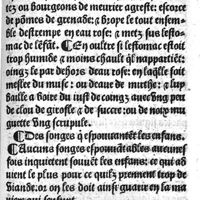 tez ou bourgeons de meurier agreste: escorce
et põmes de grenade: & brope le tout ensem-
ble destrempe en eau rose: & metz sus lesto-
mac de lẽfãt. ¶En oultre si lestomac estoit
trop humide & moins chault qͥl nappartiẽt:
oingz le par dehors deau rose: en laq̃lle soit
mesler du musc: ou deaue de murthe: & luy
baille a boire du iust de coingz auec vng peu
de clou de girofle & de succre: ou de noix mu-
guette vng scrupule.
¶Des songes q̃ espouantẽt les enfans.
¶Aucuns songes espouantables aucunes
fois inquietent souuẽt les enfans: ce qui ad
uient le plus pour ce quilz prennent trop de
viande. or on les doit ainsi guarir en la ma